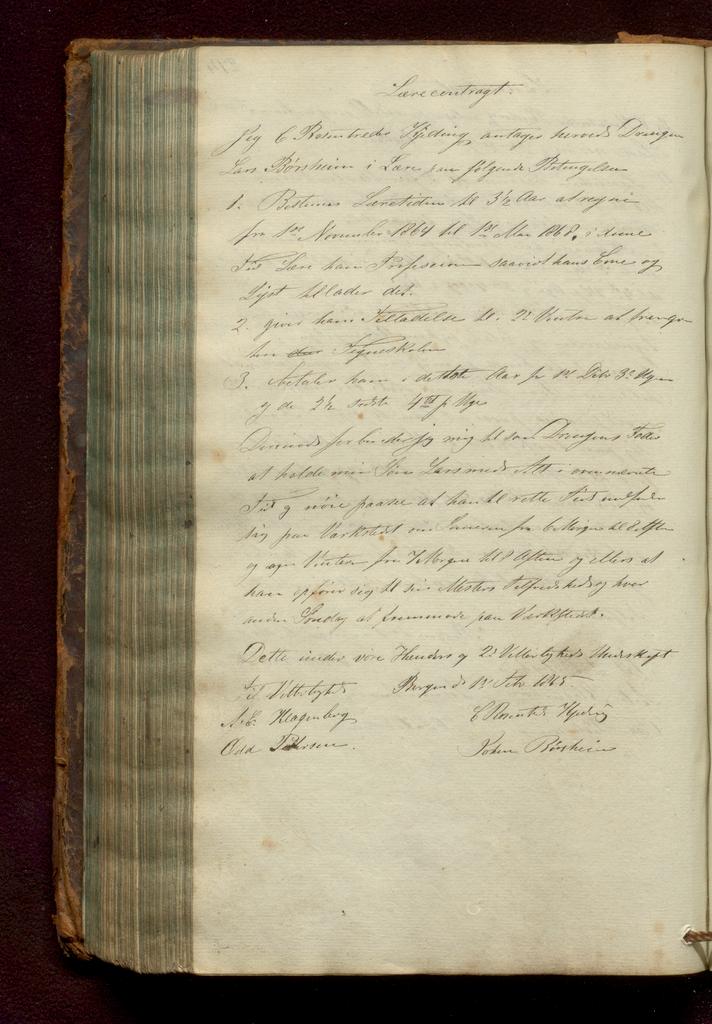 Lærecontragt.
Jeg C Rosentreder Hjeding antager herved Drengen
Lars Børsheim i Lære paa følgende Betingelser
1. Bestemes Læretiden til 3½ Aar at regne
fra 1ste November 1864 til 1ste Mai 1868, i denne
Tid Lære ham Professionen saavidt hans Evne og
Lyst tillader det.
2. giver ham Tilladelse til 2de Vintre at freqven
tere Tegneskolen
3. betaler ham i det Aar
og de 2½ sidste 4 Uge
Derimod forbinder jeg mig til som Drengens Fader
at holde min Søn Lars med Alt i ovennævnte
Tid og nøie paasee at han til rette Tid indfinder
sig paa Værkstedet om Sommeren fra 6 Morgen til 8 Aften
og om Vinteren fra 7 Morgen til 8 Aften og ellers at
han opfører sig til sin Mesters Tilfredshed og hver
anden Søndag at fremmøde paa Værkstedet.
Dette under vore Hænder og 2de Vitterligheds Underskrift
Til Vitterlighed Bergen d. 1ste Febr 1865
A. E. Klagenberg C Rosentr Hjeding
Odd Petersen. Børsheim